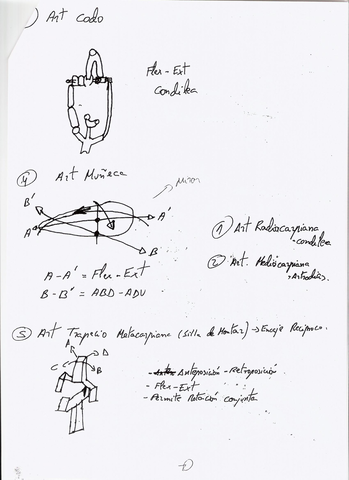 ) Art Codo
Flex-Ext
Condilea
4) Art Muñeca
B'
A'
A
B
1) Art Radiocarpiana
-condilea
A-A' = Flex-Ext
2) Art. Mediocarpiana
B-B' = ABD-ADU
5) Art Trapecio Metacarpiana (Silla de Montar) → Encaje Recíproco.
A D
C B
- Anteposición - Retroposición
- Flex-Ext
- Permite Rotación conjunta